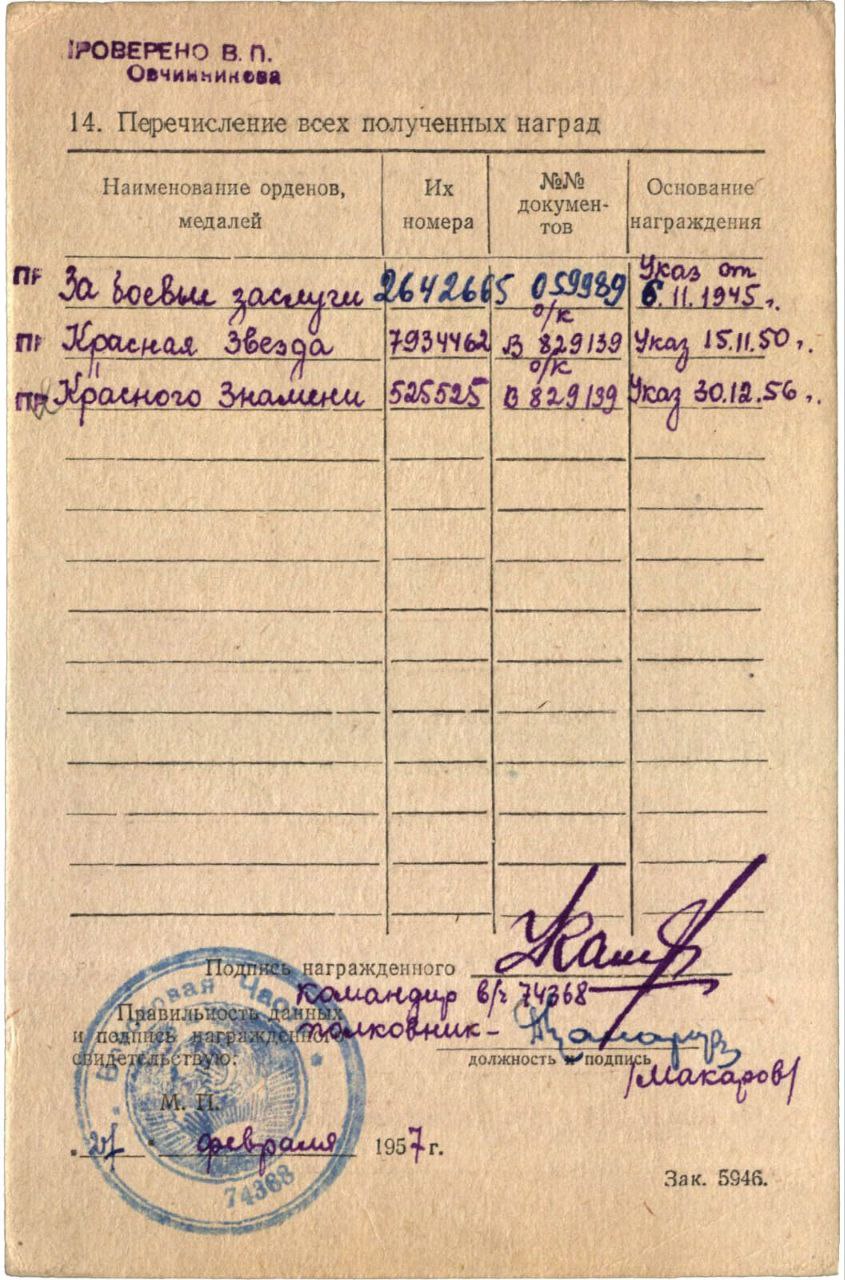 ПРОВЕРЕНО В. П.
Овчинникова
14. Перечисление всех полученных наград
Наименование орденов, медалей
Их номера
№№ докумен-тов
Основание награждения
ПР За боевые заслуги 2642665 059989 Указ от 6.11.1945 г.
ПР Красная Звезда 7934462 о/к В 829139 Указ 15.11.50 г.
ПР Красного Знамени 525525 о/к В 829139 Указ 30.12.56 г.
Подпись награжденного
Командир в/ч 74368
Правильность данных
и подпись награжденного полковник-
свидетельствую:
должность и подпись
/Макаров/
М. П.
Войсковая Часть
74368
февраля 1957 г.
Зак. 5946.